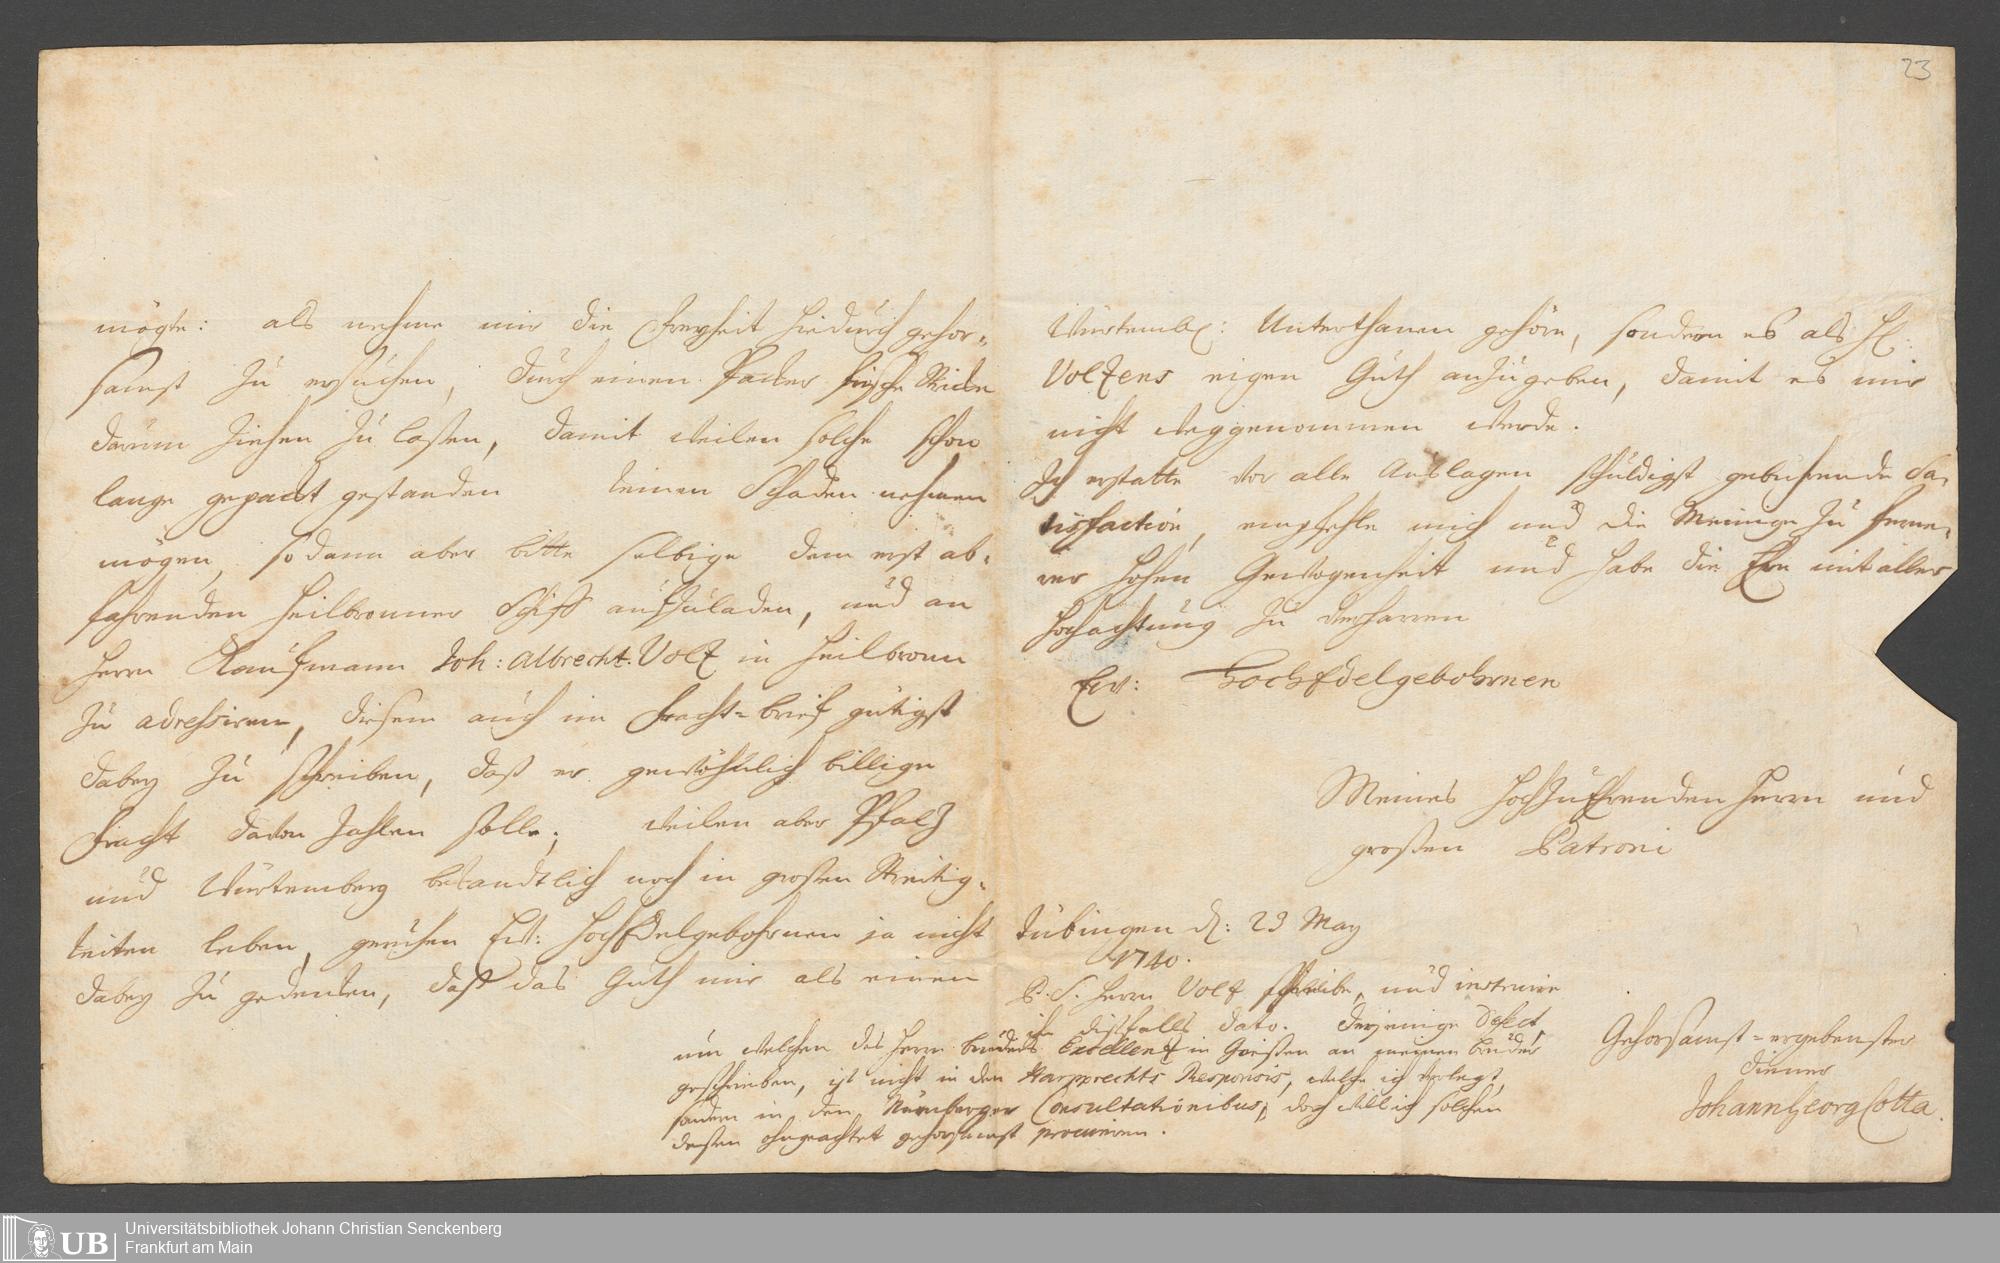 23
mögte: als nehme mir die Freyheit hiedurch gehor-
samst zu ersuchen, durch einen Pader frische Stricke
darum ziehen zu laßen, damit weilen solche schon
lange gepackt gestanden keinen Schaden nehmen
mögen, so dann aber bitte selbige dem erst ab-
fahrenden Heilbronner Schiff aufzuladen, und an
Herrn Kaufmann Joh: Albrecht Volz in Heilbronn
zu adressiren, diesem auch im Fracht-brief gütigst
dabey zu schreiben, daß er gewöhnlich billige
Fracht davon zahlen solle; weilen aber Pfalz
und Würtemberg bekandtlich noch in großen Streitig-
keiten leben, geruhen Ew: HochEdelgebohrnen ja nicht
dabey zu gedencken, daß das Guth mir als einem
Würtemb: Unterthanen gehöre, sondern es als H:
Volzens eigen Guth anzugeben, damit es mir
nicht weggenommen werde.
Ich erstatte vor alle Auslagen schuldigst gebührende Sa-
tisfaction, empfehle mich und die Meinige zu ferne-
rer hohen Gewogenheit und habe die Ehre mit aller
Hochachtung zu verharren
Ew: HochEdelgebohrnen
Meines HochzuEhrenden Herrn und
großen Patroni
Tübingen d: 23 May
1740.
P. S. Herrn Volz schreibe, und instruire
ihn dißfalls dato. derjenige Defect,
um welchen des Herrn bruders Excellenz in Gießen an meinen bruder
geschrieben, ist nicht in den Harpprechts Responsis, welche ich verlegt,
sondern in den Nürnberger Consultationibus; doch will ich solchen
deßen ohngeachtet gehorsamst procuriren.
Gehorsamst-ergebenster
diener
Johann Georg Cotta.
UB
Universitätsbibliothek Johann Christian Senckenberg
Frankfurt am Main